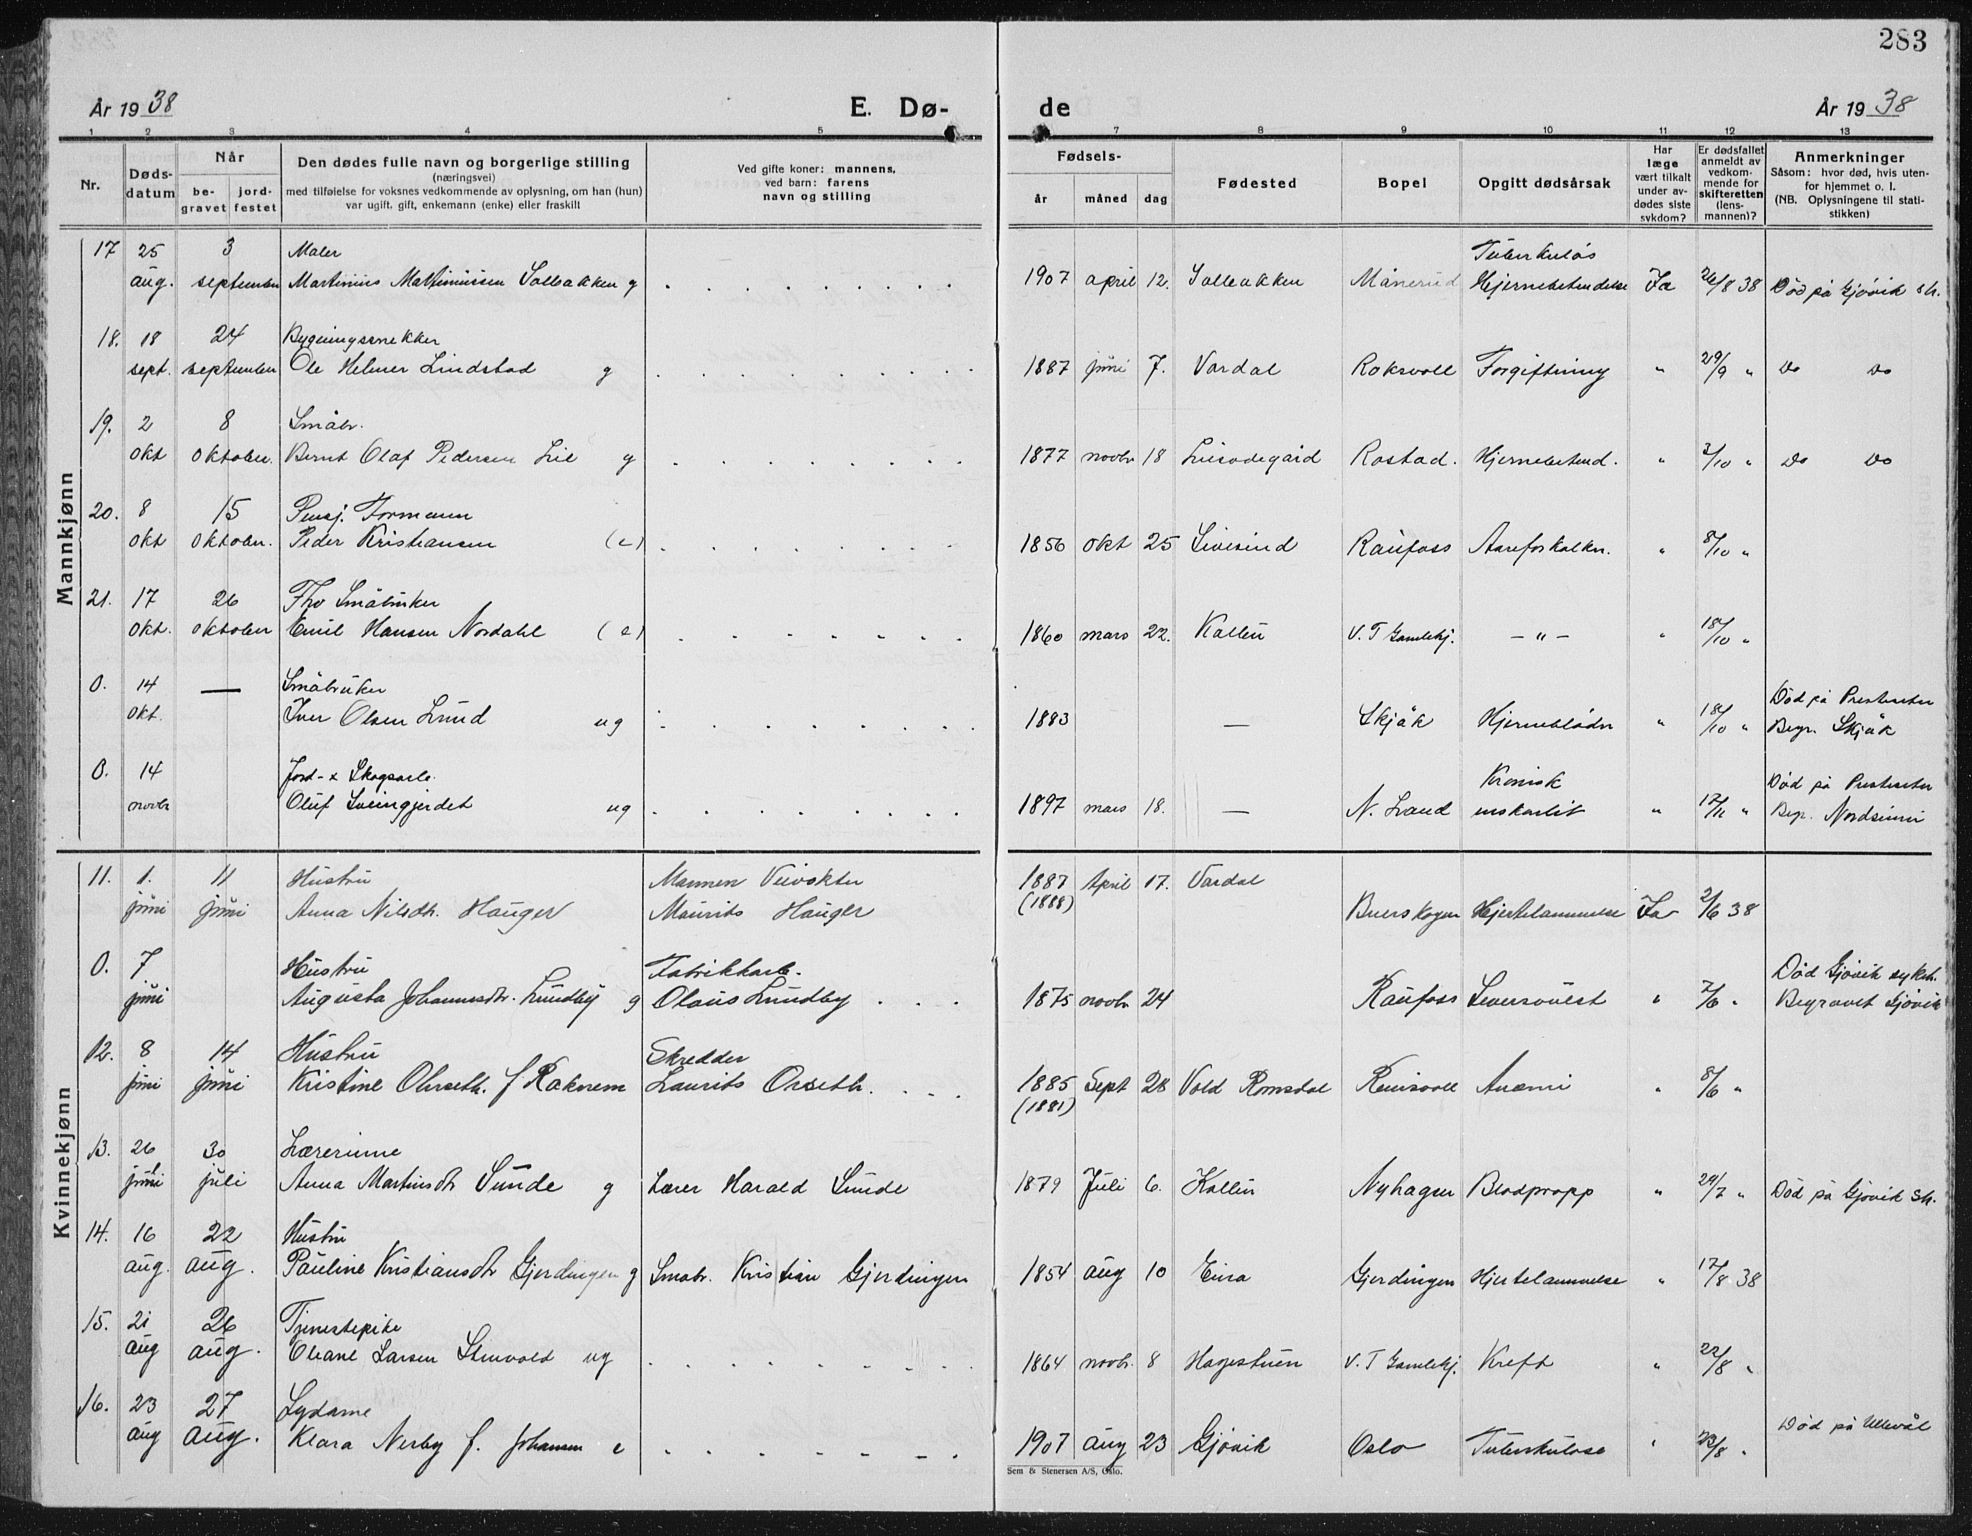 283
År 1938 E. Dø- de År 1938
1 2 3 4 5 7 8 9 10 11 12 13
Nr. Døds-datum Når be-gravet jord-festet Den dødes fulle navn og borgerlige stilling (næringsvei) med tilføielse for voksnes vedkommende av oplysning, om han (hun) var ugift, gift, enkemann (enke) eller fraskilt Ved gifte koner: mannens, ved barn: farens navn og stilling Fødsels- år måned dag Fødested Bopel Opgitt dødsårsak Har læge vært tilkalt under av-dødes siste sykdom? Er dødsfallet anmeldt av vedkom-mende for skifteretten (lens-mannen)? Anmerkninger Såsom: hvor død, hvis uten-for hjemmet o. l. (NB. Oplysningene til stati-stikken)
Mannkjønn
17 25 3 Maler Tuberkuløs
aug. september Martinius Solbakken g 1907 april 12. Solbakken Månerud Hjernebetendelse Ja 26/8 38 Død på Gjøvik sh.
18. 18 24 Bygningssnekker
sept. september Ole Helmer Lindstad g 1887 juni 7. Vardal Roksvoll Forgiftning " 29/9 " Do Do
19. 2 8 Småbr.
okt oktober. Bernt Olaf Pedersen Lie g 1877 novbr 18 Rostad. Hjernebetend. " 3/10 " Do Do
20. 8 15 Pensj. Formann
okt oktober. Peder Kristiansen (e) 1856 okt 25 Raufoss Aareforkalkn. " 8/10 "
21. 17 26 Fhv Småbruker
okt. oktober Emil Hansen Nordahl (e) 1860 mars 22. Kallin V. T Gamlehj. — " — " 18/10 "
0. 14 — Småbruker Død på Presteseter
okt. Iver Olsen Lund ug 1883 — Skjåk Hjerneblødn " 18/10 " Begr. Skjåk
0. 14 Jord- & Skogsarb. Kronisk Død på Presteseter
novbr Oluf Sveingjerdet ug 1897 mars 18. — N. Land " 17/11 " Begr. Nordsinni
Kvinnekjønn
11. 1. 11 Hustru Mannen Veivokter 1887 April 17. Vardal
juni juni Anna Nilsdtr. Hauger Maurits Hauger (1888) Buerskogen Hjertelammelse Ja 2/6 38
0. 7 Hustru Fabrikkarb. Død Gjøvik sykeh.
juni Augusta Johannesdtr. Lundby g Olaus Lundby 1875 novbr 24 Raufoss Leversvulst " 7/6 " Begravet Gjøvik
12. 8 14 Hustru Skredder
juni juni Kristine Orseth. f. Rakvrem Laurits Orseth. 1885 Sept 28 Vold Romsdal Reinsvoll Anæmi " 8/6 "
(1881)
13. 26 30 Lærerinne
juli juli Anna Martinsdtr Sunde g Lærer Harald Sunde 1879 Juli 6. Kallin Nyhagen Blodpropp " 24/7 " Død på Gjøvik sh.
14. 16 22 Hustru
aug. aug. Pauline Kristiansdtr Gjerdingen g Småbr. Kristian Gjerdingen 1854 aug 10 Eina Gjerdingen Hjertelammelse " 17/8 38
15. 21 26 Tjenestepike
aug aug. Oleane Larsen Stenvold ug 1864 novbr. 8 Hagestuen V. T Gamlehj. Kreft " 22/8 "
16. 23 27 Sydame Død på Ullevål
aug aug. Klara Nerby f. Johansen e 1907 aug 23 Gjøvik Oslo Tuberkulose " 23/8 "
Sem & Stenersen A/S, Oslo.